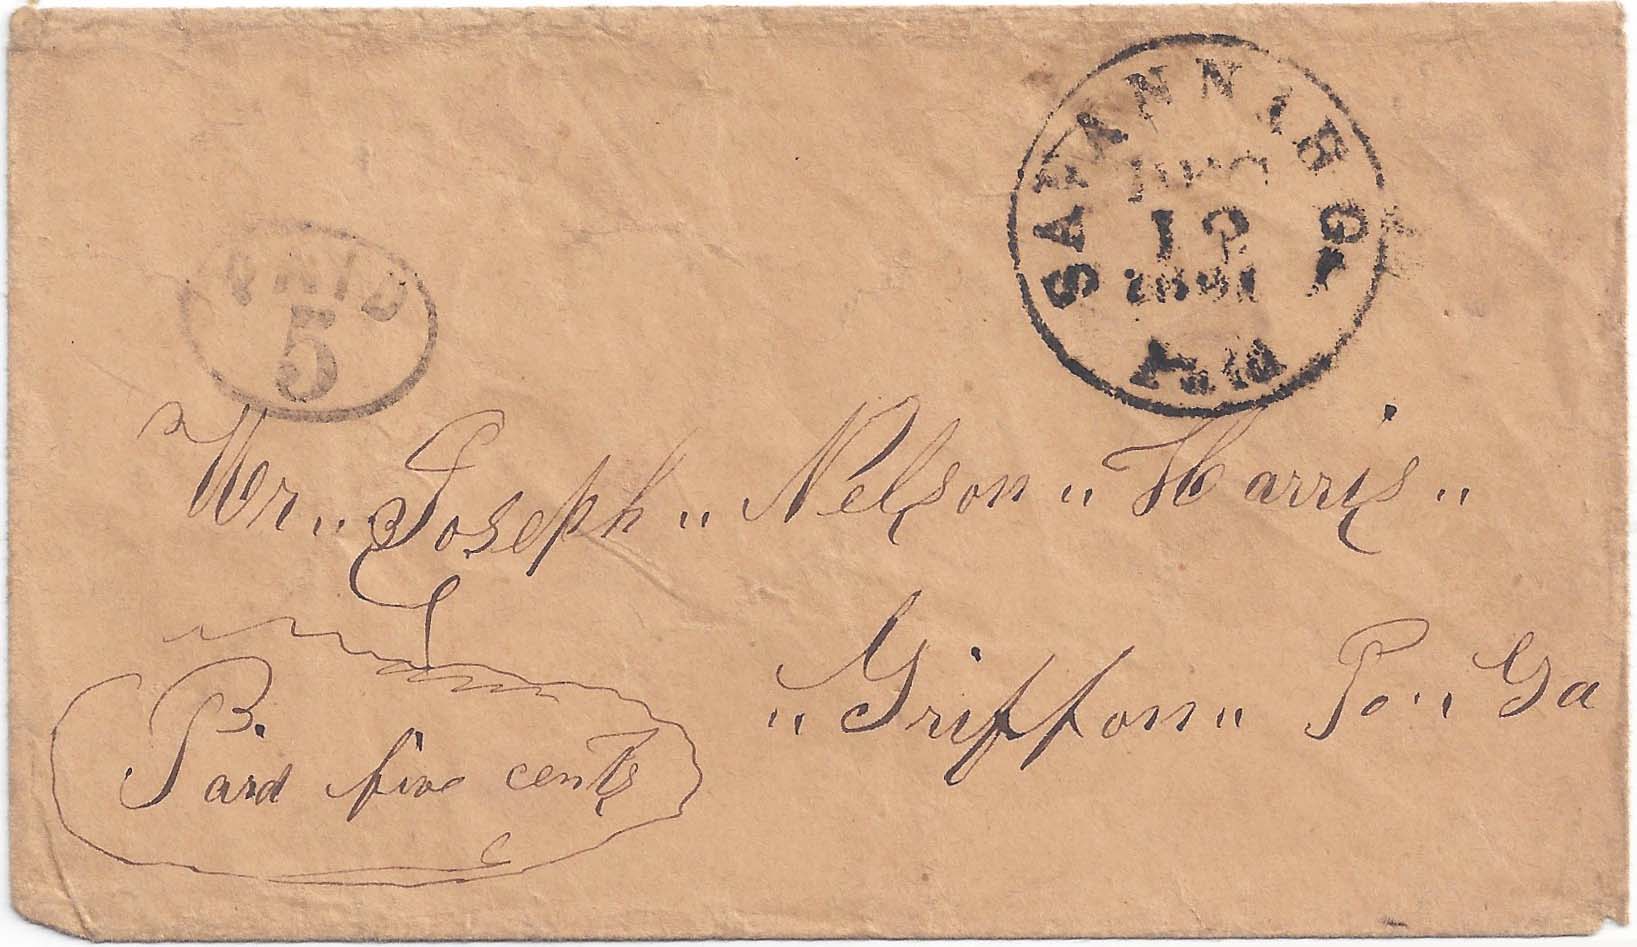 SAVANNAH Ga.
AUG
12
1861
PAID
5
Mr " Joseph " Nelson " Harris "
" Griffon " Po " Ga
Paid five cents